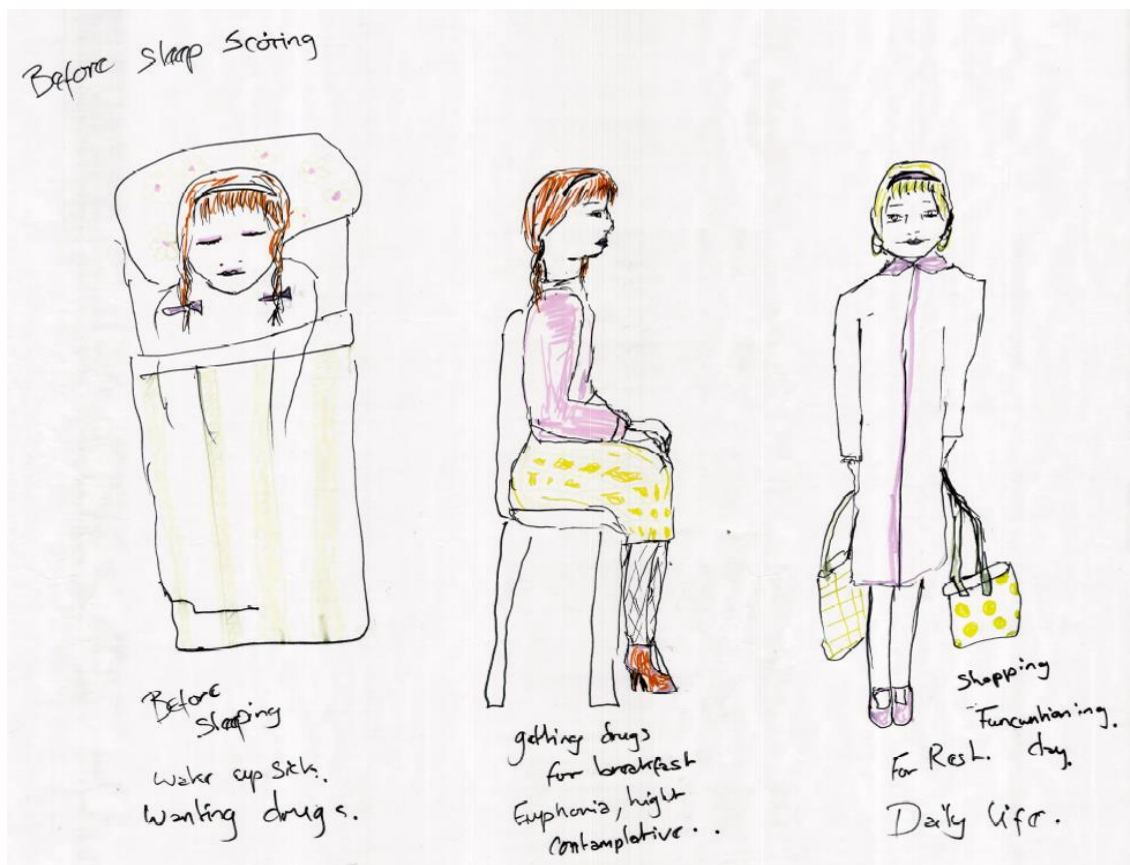 Before sleep scoring
Before
sleeping
wake up sick.
wanting drugs.
getting drugs
for breakfast
Euphonia, hight
contamplative..
shopping
Funcuntianing.
For Rest. day.
Daily life.